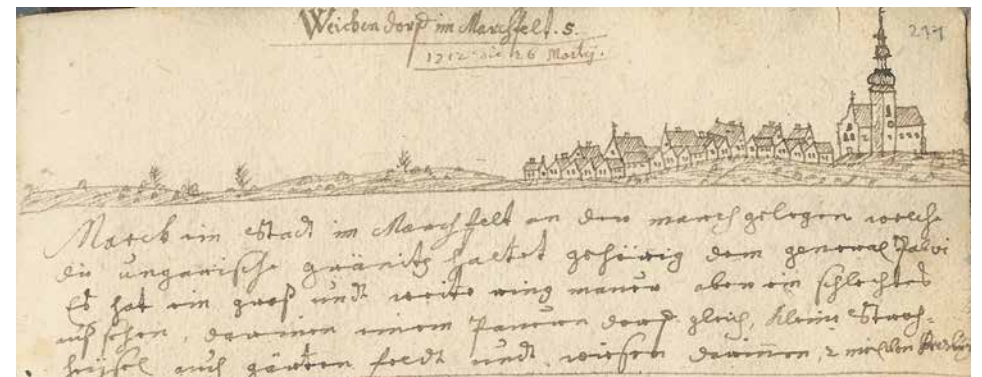 Weickendorf im Marchfelt. S.
1712 die 26 Martij.
277
Marck ein Stadt im Marchfelt an der march gelegen welche
die ungarische gränitz haltet gehörig dem general
Es hat ein groß undt weite ring mauer aber ein schlechtes
auß sehen, darinen einem Pauern dorf gleich, kleine Stroh-
heüsel auch gärten feldt undt wiesen darinnen, 2